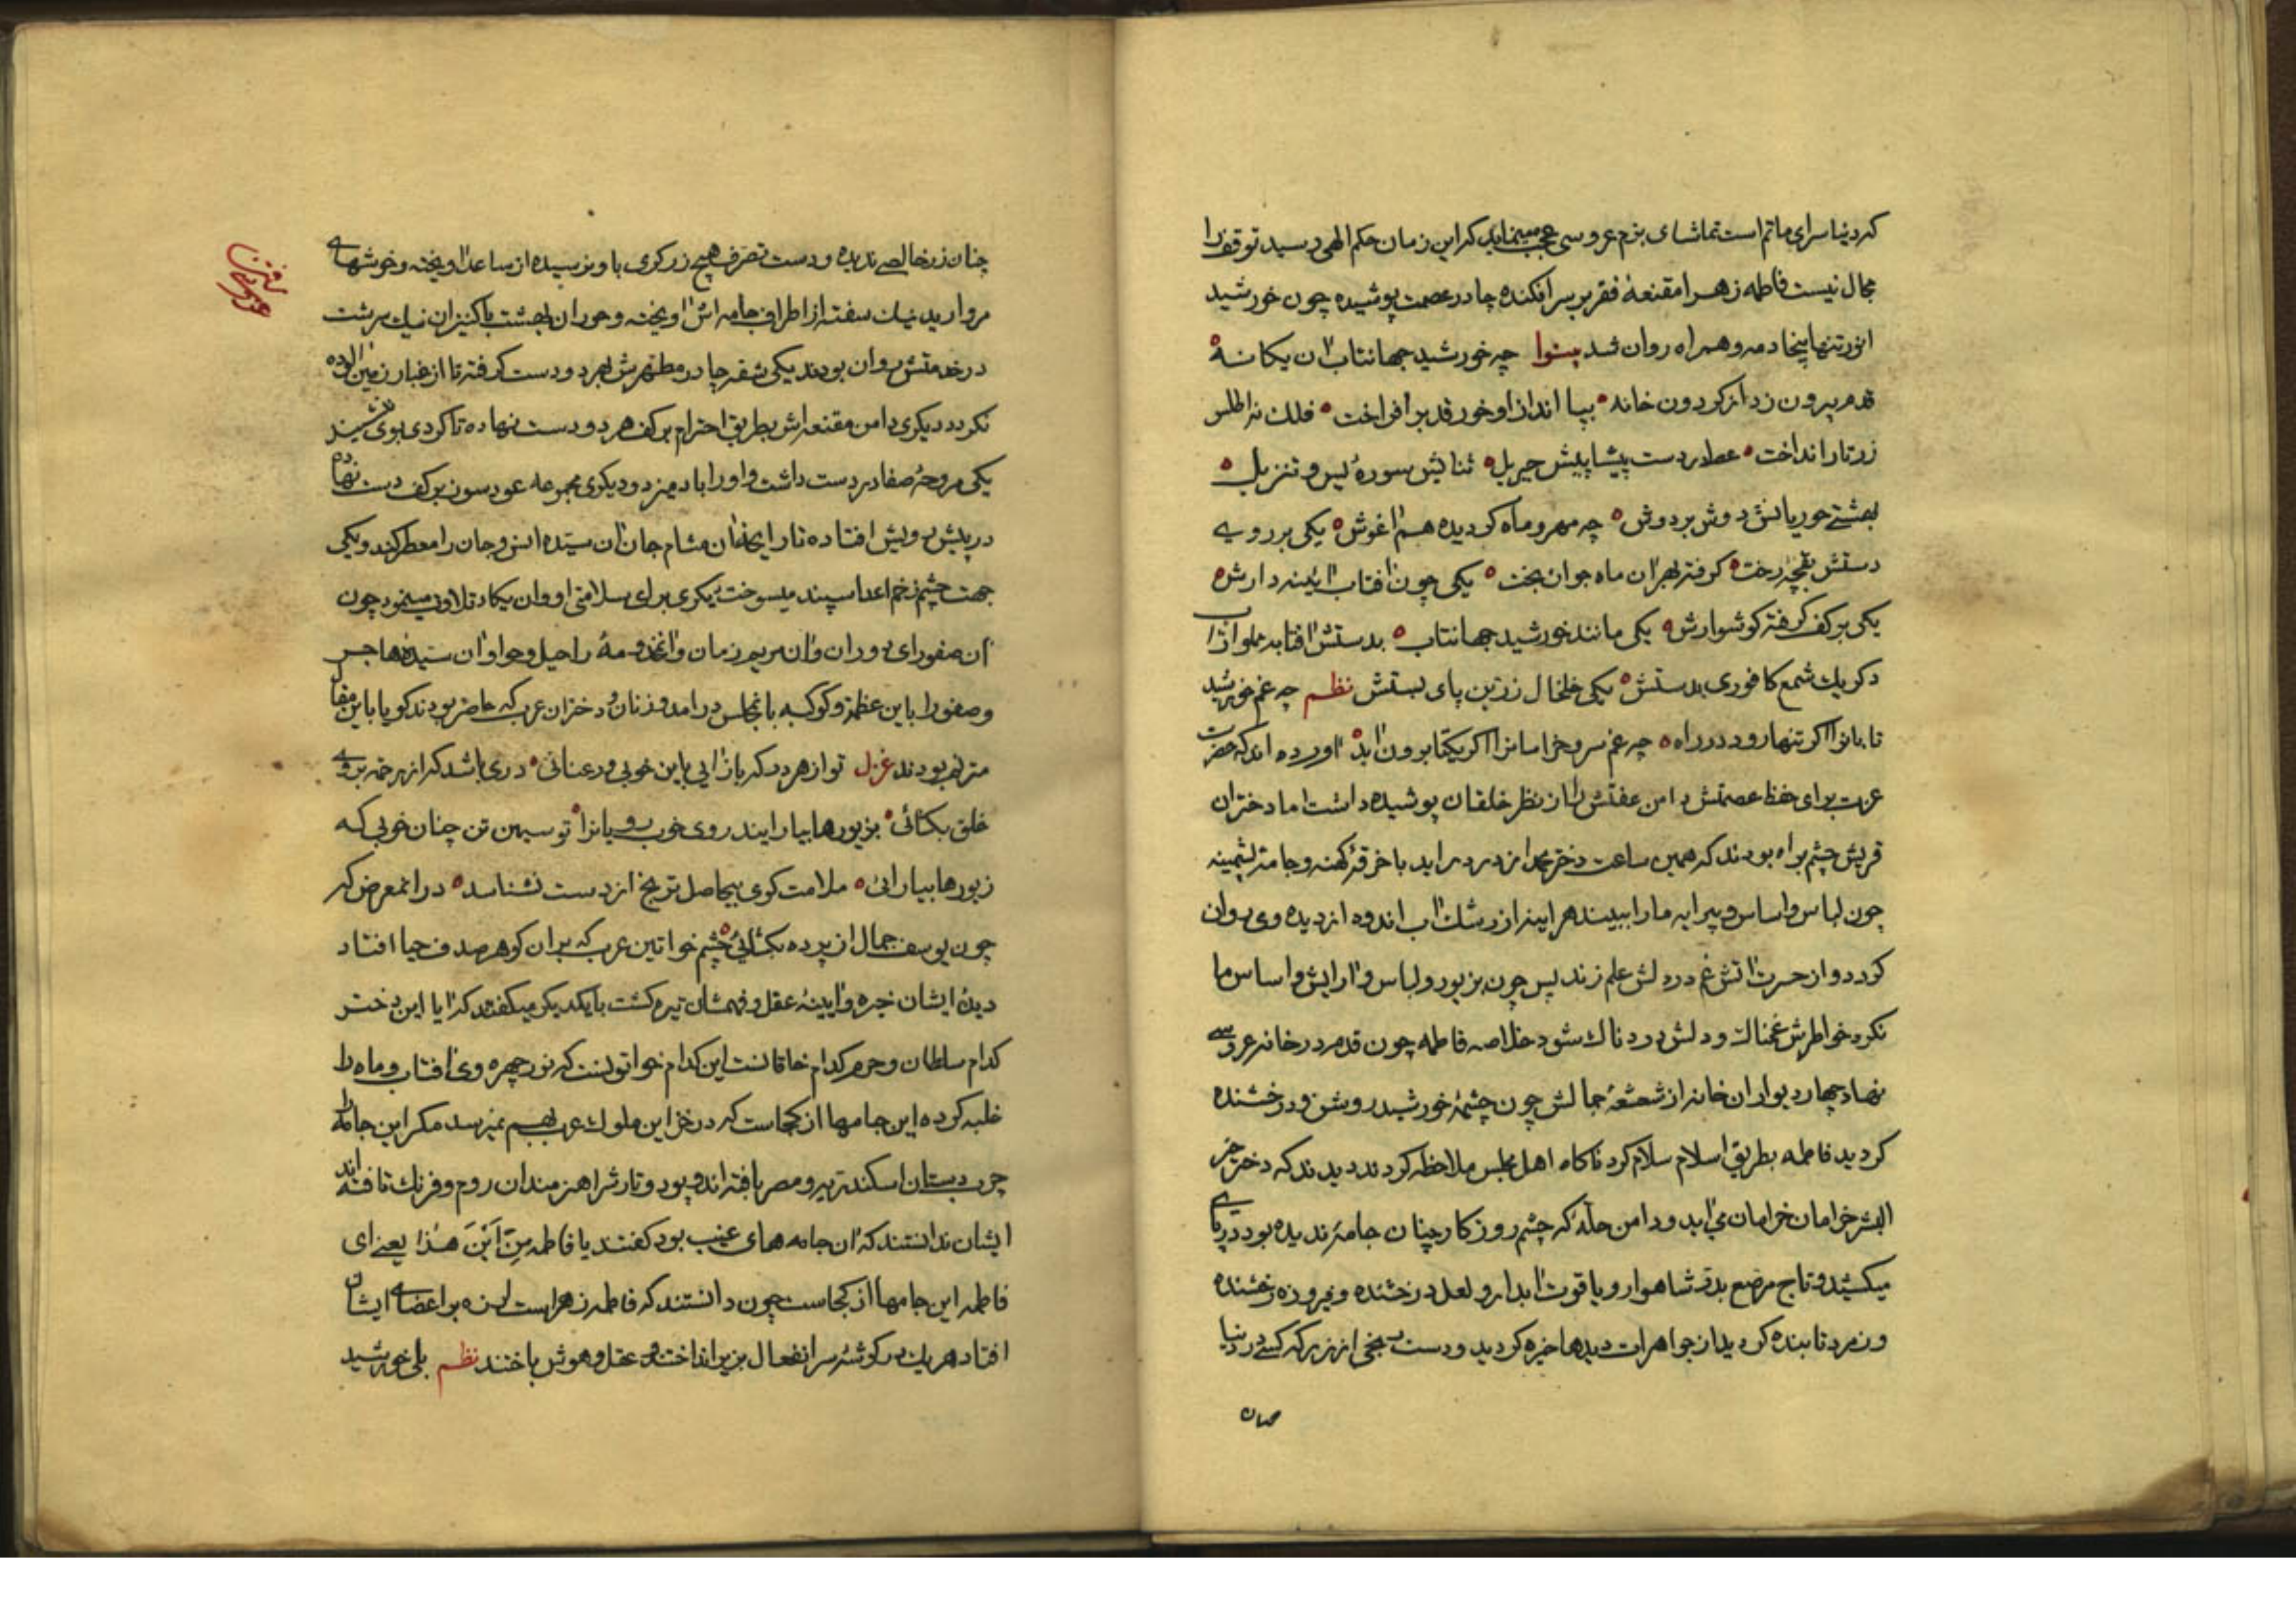 که دنیا سرای ماتم است تماشای بزم عروسی عجب مینماید که این زمان حکم الهی رسید توقف را
مجال نیست فاطمه زهرا مقنعهٔ فقر بر سر افکنده چادر عصمت پوشیده چون خورشید
انور تنها بیخادمه و همراه روان شد چه خورشید جهانتاب آن یکانه
قدم بیرون زد از کردون خانه بپا انداز او خور قد برافراخت فلك نه اطلس
زرتار انداخت عطارد ست پیشاپیش جبریل ثنایش سورهٔ یس و تنزیل
بهشتی حوریانش دوش بر دوش چه مهر و ماه کردیده هم آغوش یکی بر روی
دستش بقچهٔ رخت کرفته بهر آن ماه جوان بخت یکی چون آفتاب آیینه دارش
یکی بر کف کرفته کوشوارش یکی مانند خورشید جهانتاب بدستش آفتابه مملو از آب
دکر یك شمع کافوری بدستش یکی خلخال زرین پای بستش نظم چه غم خورشید
تابانرا اکر تنها رود در راه چه غم سرو خرامانرا اکر یکتا برون آید آورده اند که حضرت
عزت برای حفظ عصمتش دامن عفتش را از نظر خلقان پوشیده داشت اما دختران
قریش چشم براه بودند که همین ساعت دختر محمد از در در اید با خرقهٔ کهنه و جامهٔ پشمینه
چون لباس و اساس و پیرایه ما را ببیند هر اینه از رشك آب اندوه از دیده وی روان
کردد و از حسرت آتش غم در دلش علم زند پس چون بزیور و لباس و آرایش و اساس ما
نکرد خواطرش غمناك و دلش دردناك شود خلاصه فاطمه چون قدم در خانه عروسی
نهاد چهار دیوار ان خانه از شعشعهٔ جمالش چون چشمهٔ خورشید روشن و درخشنده
کردید فاطمه بطریق اسلام سلام کرد ناکاه اهل مجلس ملاحظه کردند دیدند که دختر خیر
البشر خرامان خرامان می آید و دامن حلهٔ که چشم روزکار چنان جامهٔ ندیده بود در پای
میکشید و تاج مرصع بدر شاهوار و یاقوت آبدار و لعل درخشنده و فیروزه رخشنده
و زمرد تابنده کردید از جواهرات دیدها خیره کردید و دست برنجی از زر که کسی در دنیا
چنان
چنان زر خالصی ندیده و دست تصرف هیچ زرکری باو نرسیده از ساعد آویخته و خوشهای
مروارید نیك سفته از اطراف جامه اش آویخته و حوران بهشت با کنیزان نیك سرشت
در خدمتش روان بودند یکی شقه چادر مطهرش بهر دو دست کرفته تا از غبار زمین آلوده
نکردد دیکری دامن مقنعه اش بطریق احترام بر کف هر دو دست نهاده تا کردی بوی ننشیند
یکی مروحهٔ صفا در دست داشت و او را باد میزد و دیکری مجموعه عود سوز بر کف دست نهاده
در پیش رویش افتاده تا رایحهٔ آن مشام جان آن سیده انس و جان را معطر کند و یکی
جهت چشم زخم اعدا سپند میسوخت دیکری برای سلامتی او وان یکاد تلاوت مینمود چون
آن صفورای دوران و آن مریم زمان و آن مخدومهٔ راحیل و حوا و آن سیده هاجر
و صفورا باین عظمت و کوکبه بانمجلس درامد و زنان و دختران عرب که حاضر بودند کویا باین مقا
مترنم بودند غزل تو از هر در که باز آیی باین خوبی و رعنائی دری باشد که از رحمت بروی
خلق بکشائی بزیورها بیارایند روی خوب رویانرا تو سیمین تن چنان خوبی که
زیورها بیارائی ملامت کوی بیحاصل ترنج از دست نشناسد در انمعرض که
چون یوسف جمال از پرده بکشائی چشم خواتین عرب که بران کوهر صدف حیا افتاد
دیدهٔ ایشان خیره و آیینهٔ عقل و فهمشان تیره کشت با یکدیکر میکفتند که آیا این دختر
کدام سلطان و حرم کدام خاقانست این کدام خواتونست که نور چهره وی آفتاب و ماه را
غلبه کرده این جامها از کجاست که در خزاین ملوك عرب بهم نمیرسد مکر این جامه را
چرب دستان اسکندریه و مصر بافته اند و پود و تارش را هنرمندان روم و فرنك تافته اند
ایشان ندانستند که آن جامه های غیب بود کفتند یا فاطمه مِنْ اَیْنَ هٰذا یعنی ای
فاطمه این جامها از کجاست چون دانستند که فاطمه زهراست لرزه بر اعضای ایشان
افتاد هر یك در کوشهٔ سر انفعال بزیر انداختند و عقل و هوش باختند نظم بلی خورشید